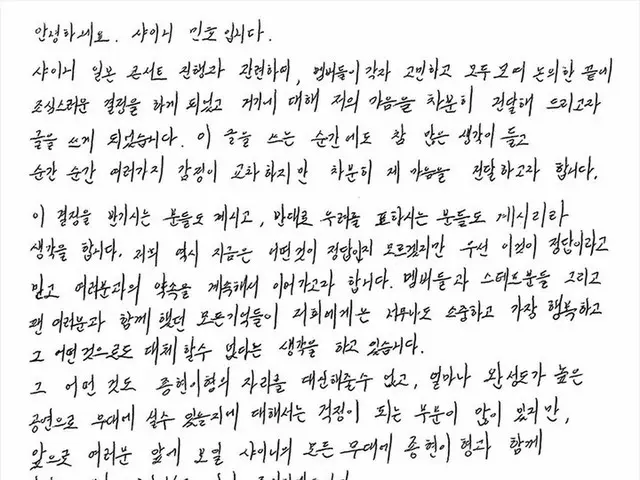 안녕하세요. 샤이니 민호입니다.
샤이니 일본 콘서트 진행과 관련하여, 멤버들이 각자 고민하고 모두 모여 논의한 끝에
조심스러운 결정을 하게 되었고 거기에 대해 저의 마음을 차분히 전달해 드리고자
글을 쓰게 되었습니다. 이 글을 쓰는 순간에도 참 많은 생각이 들고
순간 순간 여러가지 감정이 교차하지만 차분히 제 마음을 전달하고자 합니다.
이 결정을 반기시는 분들도 계시고, 반대로 우려를 표하시는 분들도 계시리라
생각을 합니다. 저희 역시 지금은 어떤것이 정답인지 모르겠지만 우선 이것이 정답이라고
믿고 여러분과의 약속을 계속해서 이어가고자 합니다. 멤버들과 스테프분들 그리고
팬 여러분과 함께 했던 모든기억들이 저희에게는 너무나도 소중하고 가장 행복하고
그 어떤것으로도 대체 할수 없다는 생각을 하고 있습니다.
그 어떤 것도 종현이형의 자리를 대신해줄수 없고, 얼마나 완성도가 높은
공연으로 무대에 설수 있을지에 대해서는 걱정이 되는 부분이 많이 있지만,
앞으로 여러분 앞에 보일 샤이니의 모든 무대에 종현이형과 함께